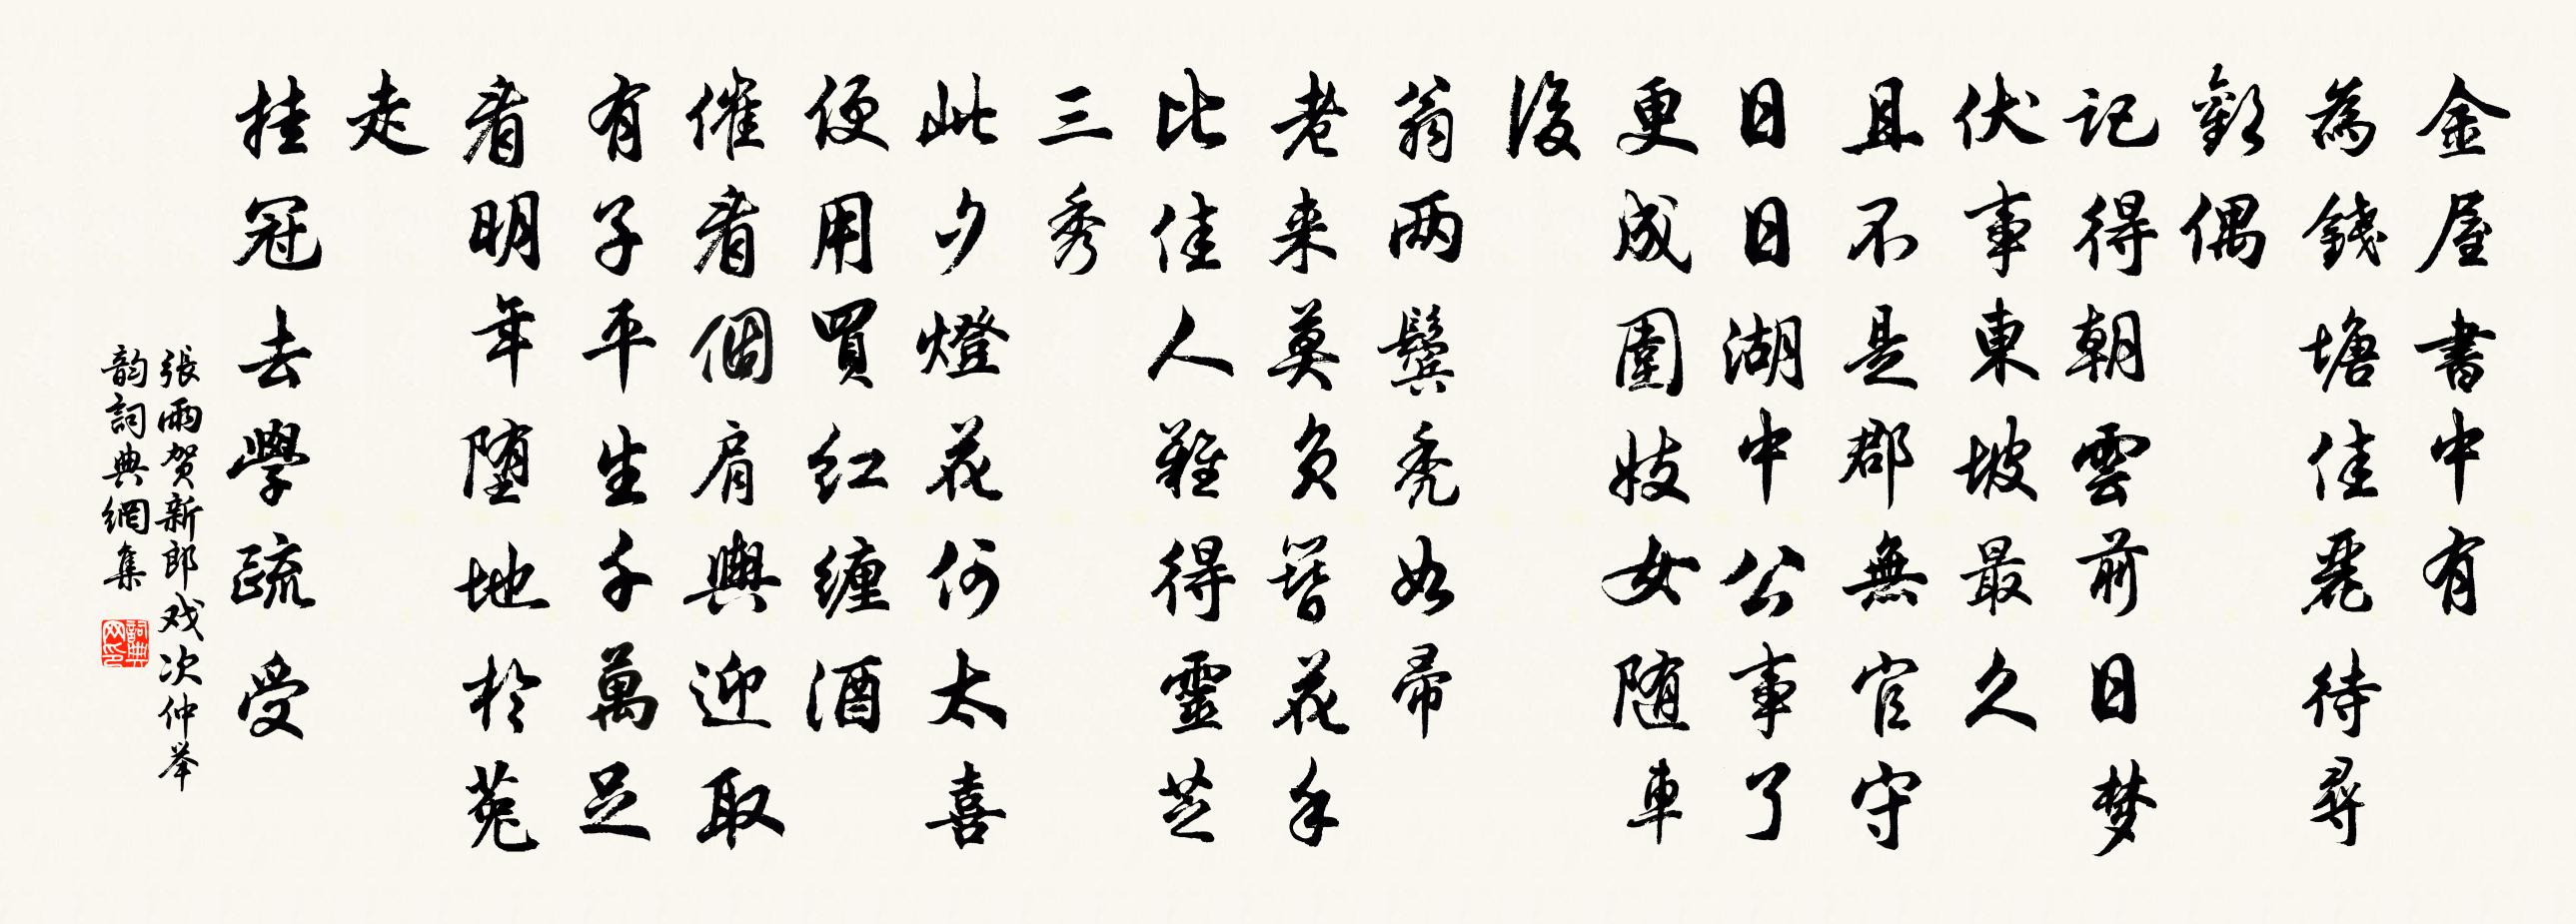 金屋書中有
為錢塘佳麗待尋
歡偶
記得朝雲前日梦
伏事東坡最久
且不是郡無官守
日日湖中公事了
更成圍妓女随車
後
翁两鬢禿如帚
老来莫負簪花手
比佳人難得靈芝
三秀
此夕燈花何太喜
便用買红缠酒
催看個肩輿迎取
有子平生千萬足
看明年堕地於菟
走
挂冠去學疏受
張雨贺新郎戏次仲举
韵詞典網集
詞典网印